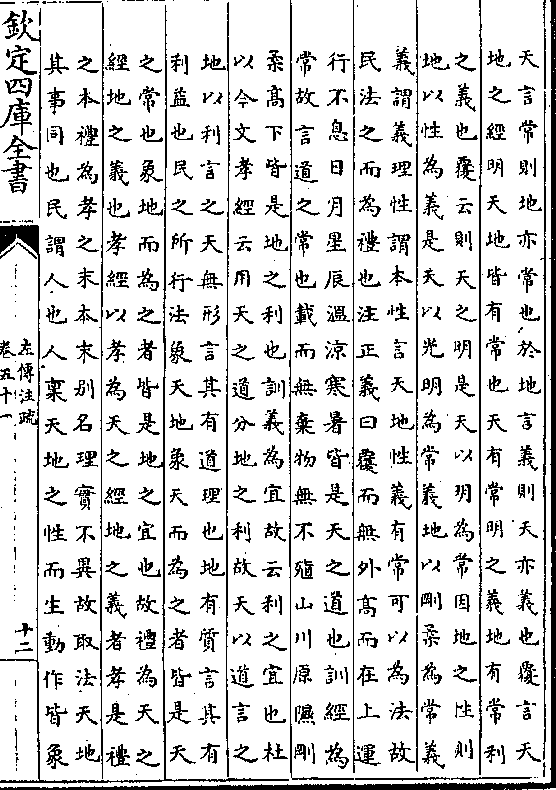 天言常則地亦常也於地言義則天亦義也覆言天
地之經明天地皆有常也天有常明之義地有常利
之義也覆云則天之明是天以明為常因地之性則
地以性為義是天以光明為常義地以剛柔為常義
義謂義理性謂本性言天地性義有常可以為法故
民法之而為禮也注正義曰覆而無外高而在上運
行不息日月星辰溫涼寒暑皆是天之道也訓經為
常故言道之常也載而無棄物無不殖山川原隰剛
柔高下皆是地之利也訓義為宜故云利之宜也杜
以今文孝經云用天之道分地之利故天以道言之
地以利言之天無形言其有道理也地有質言其有
利益也民之所行法象天地象天而為之者皆是天
之常也象地而為之者皆是地之宜也故禮為天之
經地之義也孝經以孝為天之經地之義者孝是禮
之本禮為孝之末本末別名理實不異故取法天地
其事同也民謂人也人稟天地之性而生動作皆象
欽定四庫全書
左傳注疏
卷五十一
十二